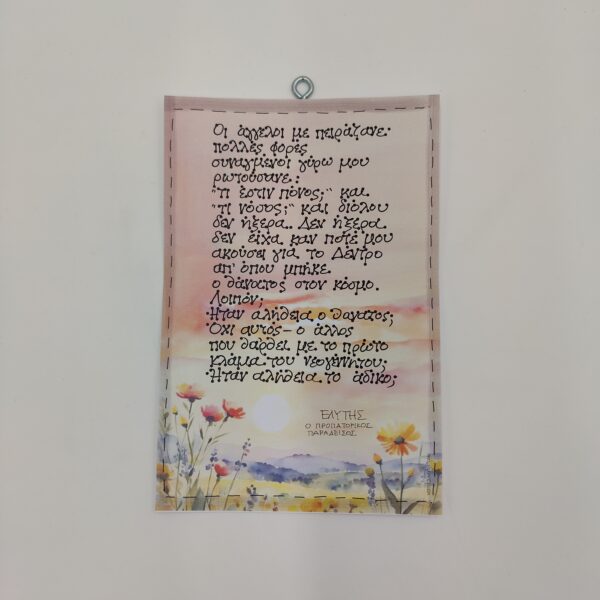 Οι άγγελοι με πειράζανε·
πολλές φορές
συναγμένοι γύρω μου
ρωτούσανε:
"τι έστιν πόνος;" και
"τι νόσος;" και διόλου
δεν ήξερα. Δεν ήξερα
δεν είχα καν ποτέ μου
ακούσει για το Δέντρο
απ' όπου μπήκε
ο θάνατος στον κόσμο.
Λοιπόν;
Ήταν αλήθεια ο θάνατος;
Όχι αυτός - ο άλλος
που θάρθει με το πρώτο
κλάμα του νεογέννητου;
Ήταν αλήθεια το άδικο;
ΕΛΥΤΗΣ
Ο ΠΡΟΠΑΤΟΡΙΚΟΣ
ΠΑΡΑΔΕΙΣΟΣ